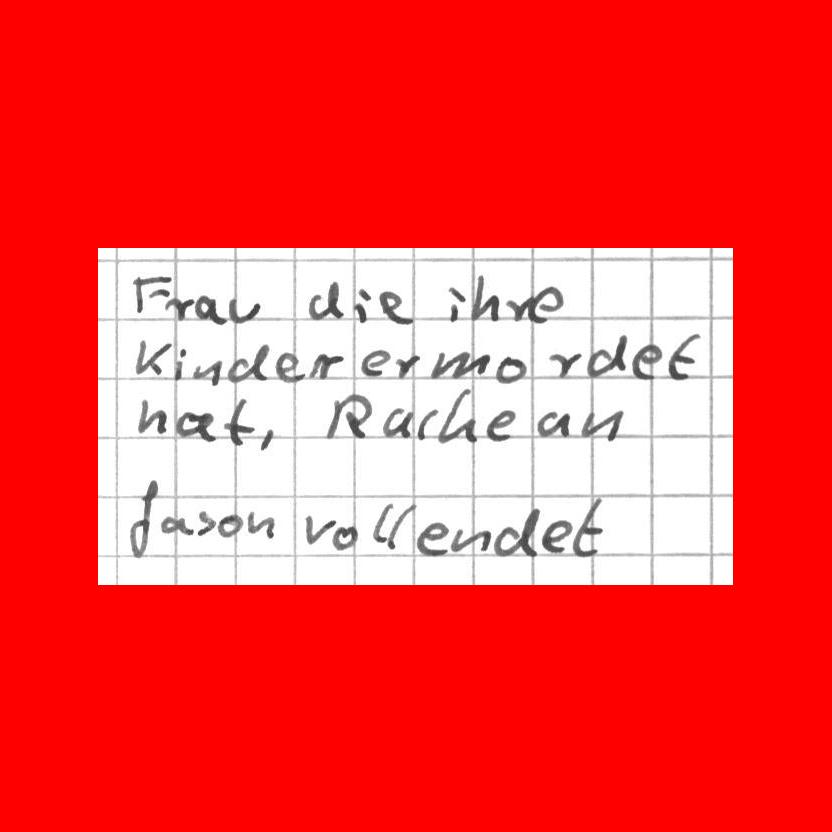 Frau die ihre
Kinder ermordet
hat, Rache an
Jason vollendet